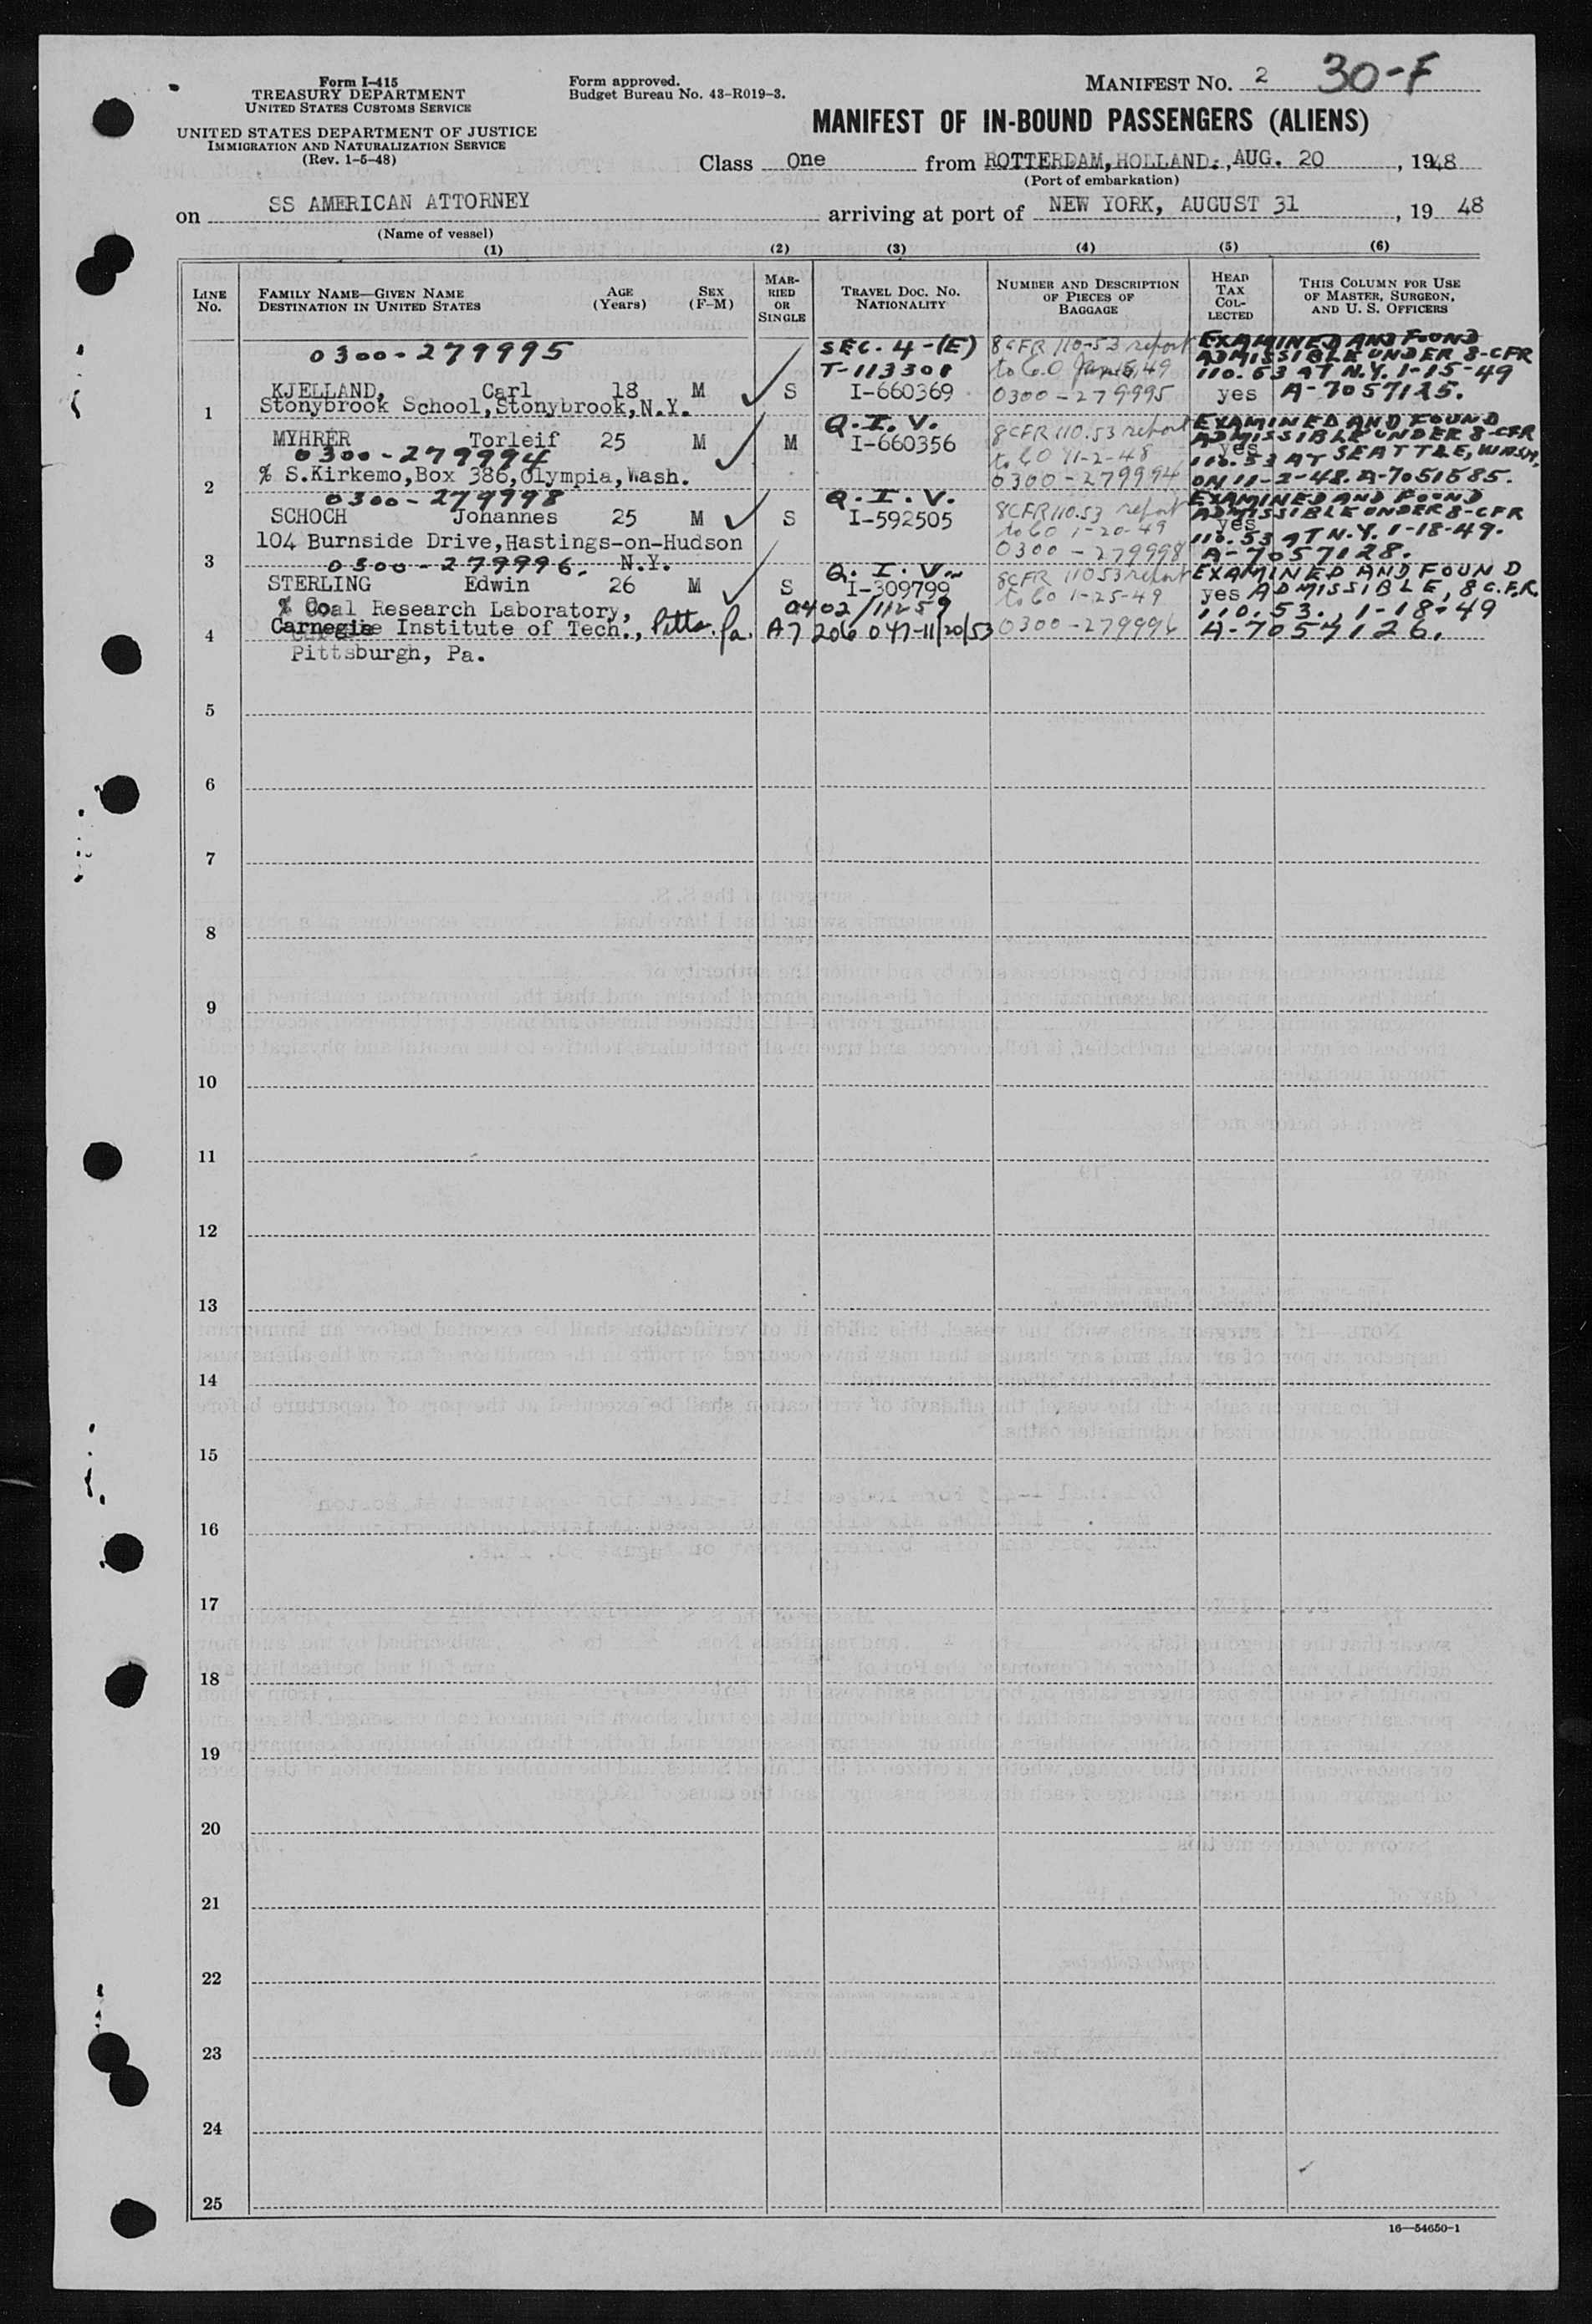 Form I-415
TREASURY DEPARTMENT
UNITED STATES CUSTOMS SERVICE
UNITED STATES DEPARTMENT OF JUSTICE
IMMIGRATION AND NATURALIZATION SERVICE
(Rev. 1-5-48)
Form approved.
Budget Bureau No. 43-R019-3.
MANIFEST No. 2 30-F
MANIFEST OF IN-BOUND PASSENGERS (ALIENS)
Class One from ROTTERDAM, HOLLAND., AUG. 20, 1948
(Port of embarkation)
on SS AMERICAN ATTORNEY arriving at port of NEW YORK, AUGUST 31, 19 48
(Name of vessel)
(1) (2) (3) (4) (5) (6)
LINE No.
FAMILY NAME—GIVEN NAME
DESTINATION IN UNITED STATES
AGE (Years)
SEX (F-M)
MARRIED OR SINGLE
TRAVEL DOC. No. NATIONALITY
NUMBER AND DESCRIPTION OF PIECES OF BAGGAGE
HEAD TAX COLLECTED
THIS COLUMN FOR USE OF MASTER, SURGEON, AND U. S. OFFICERS
0300-279995
SEC. 4-(E)
T-113308
8CFR 110-53 report
0300-279995
EXAMINED AND FOUND
ADMISSIBLE UNDER 8-CFR
110.53 AT N.Y. 1-15-49
KJELLAND, Carl 18 M S I-660369 yes A-7057125.
1 Stonybrook School, Stonybrook, N.Y.
Q.I.V.
MYHRER Torleif 25 M M I-660356 yes
0300-279994
8CFR 110.53 report
to CO 11-2-48
0300-279994
EXAMINED AND FOUND
ADMISSIBLE UNDER 8-CFR
110.53 AT SEATTLE, WASH,
ON 11-2-48. A-7051585.
2 % S.Kirkemo, Box 386, Olympia, Wash.
0300-279998
Q.I.V.
SCHOCH Johannes 25 M S I-592505 yes
8CFR 110.53 report
to CO 1-20-49
0300-279998
EXAMINED AND FOUND
ADMISSIBLE UNDER 8-CFR
110.53 AT N.Y. 1-18-49.
A-7057128.
104 Burnside Drive, Hastings-on-Hudson
3 N.Y.
0300-279996.
Q.I.V.
STERLING Edwin 26 M S I-309799 yes
8CFR 110 53 report
to CO 1-25-49
0300-279996
EXAMINED AND FOUND
ADMISSIBLE, 8 C.F.R.
110.53., 1-18-49
A-7057126.
% Coal Research Laboratory, 0402/11259
4 Carnegie Institute of Tech., Pitts. Pa. A7 206 047-11/20/53
Pittsburgh, Pa.
5
6
7
8
9
10
11
12
13
14
15
16
17
18
19
20
21
22
23
24
25
16—54650-1